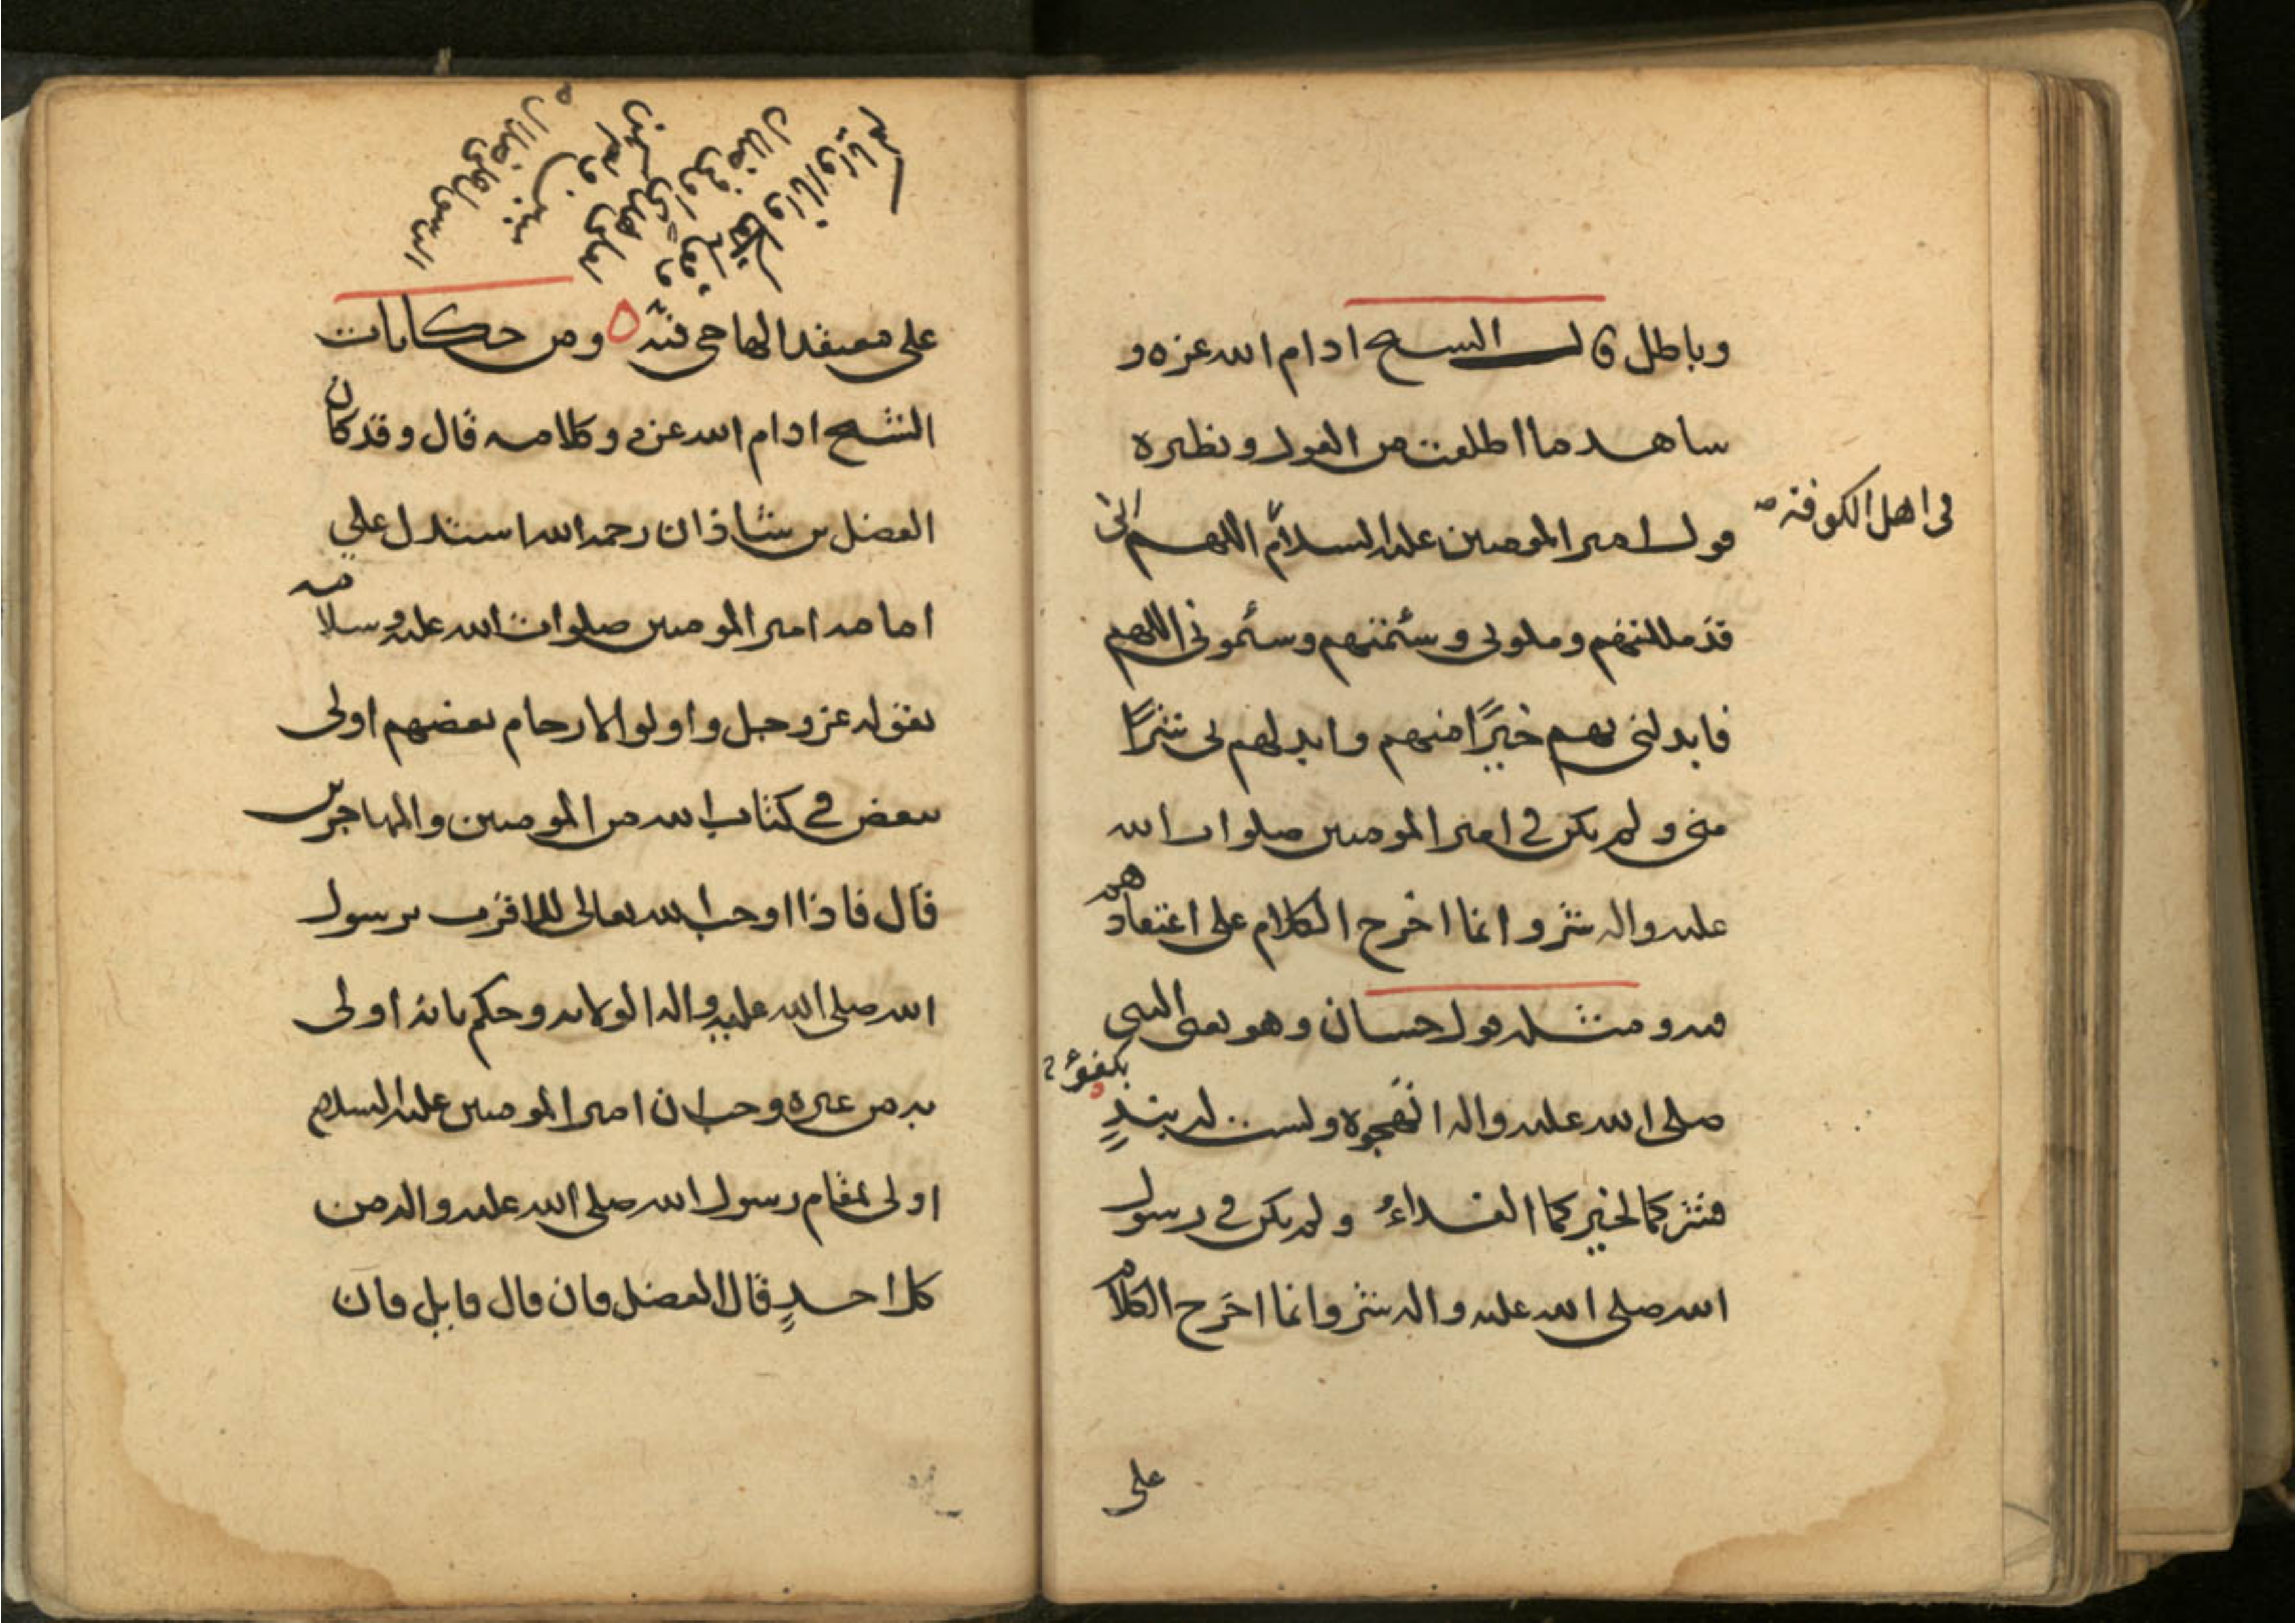 وباطل قال الشيخ ادام الله عزه و
شاهد ما اطلقت من القول ونظيره
في اهل الكوفة صح
قول امير المومنين عليه السلام اللهم اني
قد مللتهم وملوني وسئمتهم وسئموني اللهم
فابدلني بهم خيرًا منهم وابدلهم بي شرًّا
مني ولم يكن في امير المومنين صلوات الله
عليه واله شر وانما اخرج الكلام على اعتقادهم
فيه ومثله قول حسان وهو يعني النبي
صلى الله عليه واله اتهجوه ولست له بندٍ
بكفؤٍ
فشركما لخيركما الفداءُ ولم يكن في رسول
الله صلى الله عليه واله شر وانما اخرج الكلام
على
ومثله قوله تعالى
وانا او اياكم
لعلى هدى او في ضلال
مبين ولم يكن
الرسول على ضلال
على معتقد الهاجي فيه ومن حكايات
الشيخ ادام الله عزه وكلامه قال وقد كان
الفضل بن شاذان رحمه الله استدل على
امامه امير المومنين صلوات الله عليه وسلامه
بقوله عز وجل واولوا الارحام بعضهم اولى
ببعض في كتاب الله من المومنين والمهاجرين
قال فاذا اوجب الله تعالى للاقرب برسول
الله صلى الله عليه واله الولايه وحكم بانه اولى
به من غيره وجب ان امير المومنين عليه السلام
اولى بمقام رسول الله صلى الله عليه واله من
كل احدٍ قال الفضل فان قال قايل فان